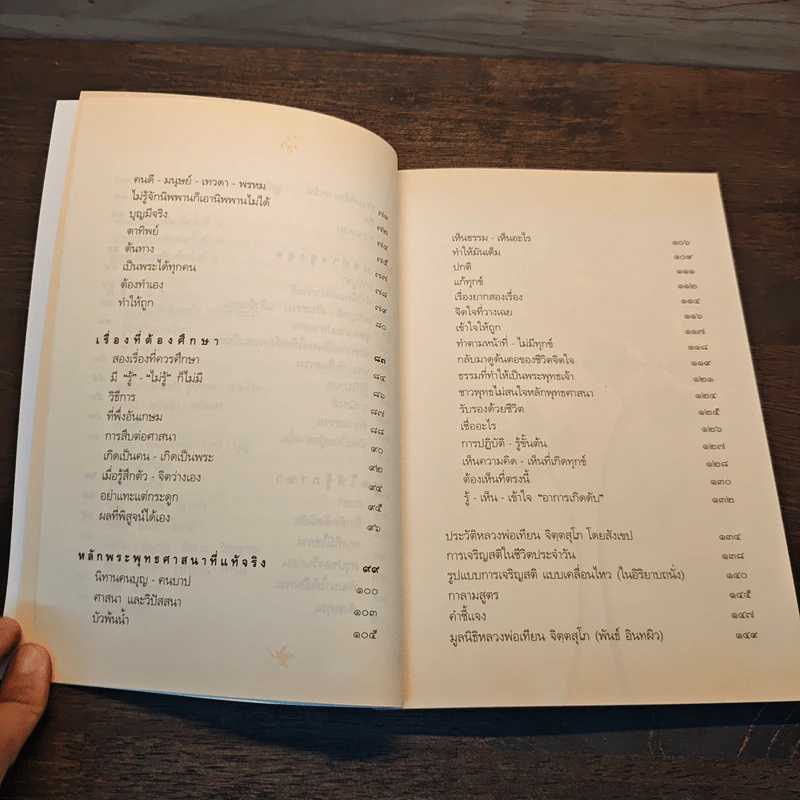 คนดี - มนุษย์ - เทวดา - พรหม
ไม่รู้จักนิพพานก็เอานิพพานไม่ได้ ๗๑
บุญมีจริง ๗๒
ตาทิพย์ ๗๔
ต้นทาง ๗๕
เป็นพระได้ทุกคน ๗๗
ต้องทำเอง ๗๘
ทำให้ถูก ๗๙
๘๐
เรื่องที่ต้องศึกษา ๘๓
สองเรื่องที่ควรศึกษา ๘๔
มี "รู้" - "ไม่รู้" ก็ไม่มี ๘๖
วิธีการ ๘๗
ที่พึ่งอันเกษม ๘๘
การสืบต่อศาสนา ๙๐
เกิดเป็นคน - เกิดเป็นพระ ๙๒
เมื่อรู้สึกตัว - จิตว่างเอง ๙๔
อย่าแทะแต่กระดูก ๙๕
ผลที่พิสูจน์ได้เอง ๙๖
หลักพระพุทธศาสนาที่แท้จริง ๙๙
นิทานคนบุญ - คนบาป ๑๐๐
ศาสนา และวิปัสสนา ๑๐๓
บัวพ้นน้ำ ๑๐๕
เห็นธรรม - เห็นอะไร ๑๐๖
ทำให้มันเต็ม ๑๐๙
ปกติ ๑๑๑
แก้ทุกข์ ๑๑๒
เรื่องยากสองเรื่อง ๑๑๔
จิตใจที่วางเฉย ๑๑๖
เข้าใจให้ถูก ๑๑๗
ทำตามหน้าที่ - ไม่มีทุกข์ ๑๑๘
กลับมาดูต้นตอของชีวิตจิตใจ ๑๑๙
ธรรมที่ทำให้เป็นพระพุทธเจ้า ๑๒๑
ชาวพุทธไม่สนใจหลักพุทธศาสนา ๑๒๔
รับรองด้วยชีวิต ๑๒๕
เชื่ออะไร ๑๒๖
การปฏิบัติ - รู้ขั้นต้น ๑๒๗
เห็นความคิด - เห็นที่เกิดทุกข์ ๑๒๘
ต้องเห็นที่ตรงนี้ ๑๓๐
รู้ - เห็น - เข้าใจ "อาการเกิดดับ" ๑๓๒
ประวัติหลวงพ่อเทียน จิตฺตสุโภ โดยสังเขป ๑๓๔
การเจริญสติในชีวิตประจำวัน ๑๓๘
รูปแบบการเจริญสติ แบบเคลื่อนไหว (ในอิริยาบถนั่ง) ๑๔๐
กาลามสูตร ๑๔๕
คำชี้แจง ๑๔๗
มูลนิธิหลวงพ่อเทียน จิตฺตสุโภ (พันธ์ อินทผิว) ๑๔๙